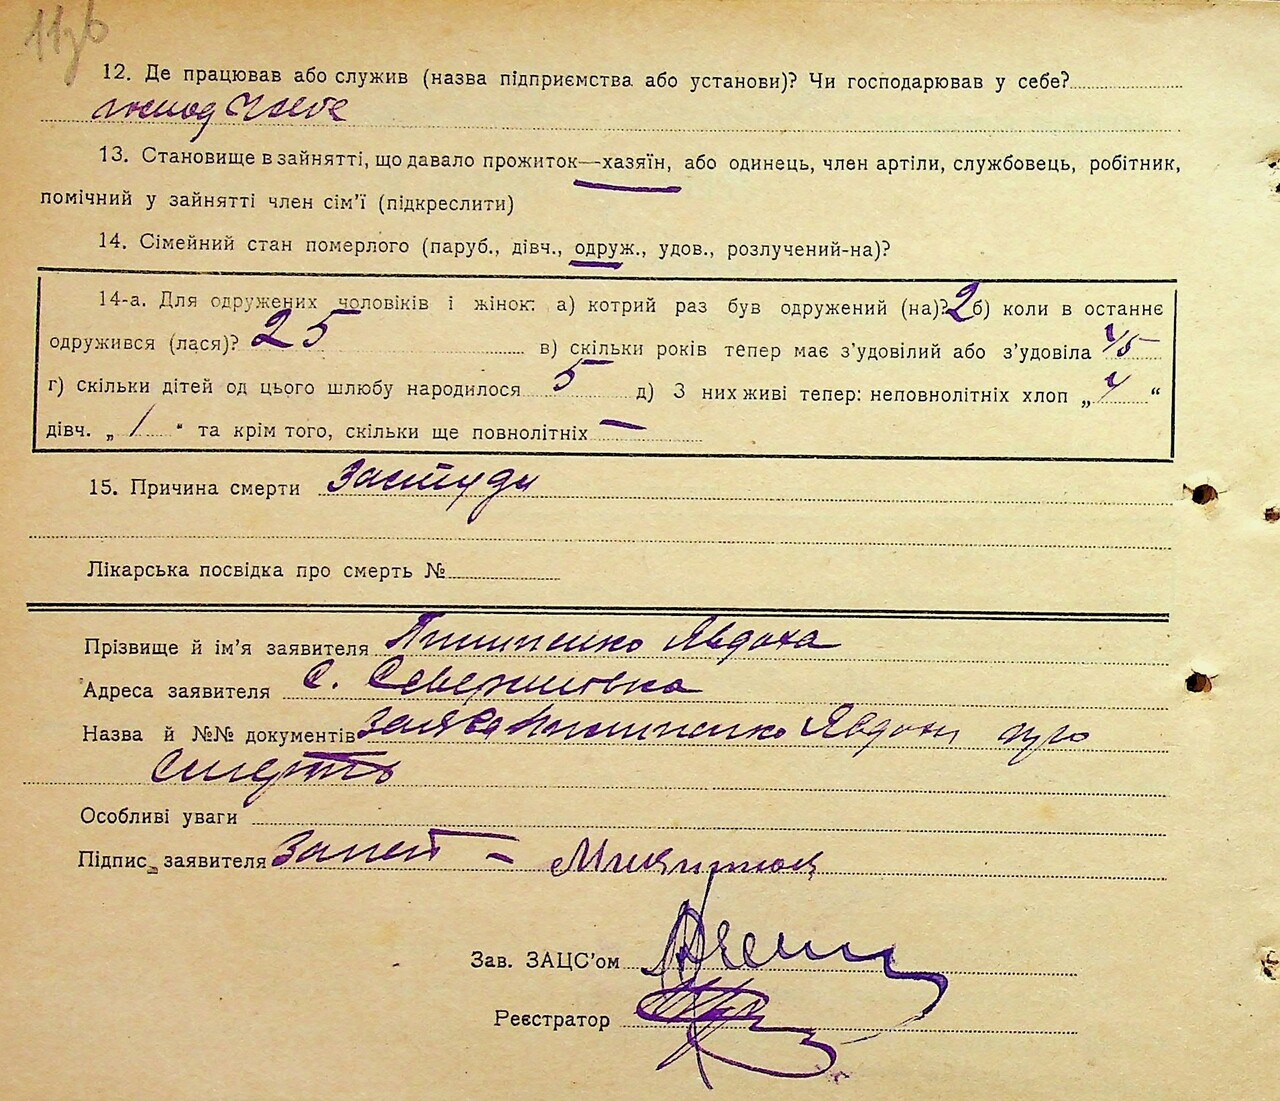 11зв
12. Де працював або служив (назва підприємства або установи)? Чи господарював у себе?
господ у себе
13. Становище в зайнятті, що давало прожиток—хазяїн, або одинець, член артіли, службовець, робітник,
помічний у зайнятті член сім’ї (підкреслити)
14. Сімейний стан померлого (паруб., дівч., одруж., удов., розлучений-на)?
14-а. Для одружених чоловіків і жінок: а) котрий раз був одружений (на)? 2 б) коли в останнє
одружився (лася)? 25 в) скільки років тепер має з’удовілий або з’удовіла 45
г) скільки дітей од цього шлюбу народилося 5 д) З них живі тепер: неповнолітніх хлоп „ 4 “
дівч. „ 1 “ та крім того, скільки ще повнолітніх —
15. Причина смерти Застуда
Лікарська посвідка про смерть №
Прізвище й ім’я заявителя Явдоха
Адреса заявителя С. Северинівка
Назва й №№ документів заява Явдохи про
смерть
Особливі уваги
Підпис заявителя
Зав. ЗАЦС’ом
Реєстратор